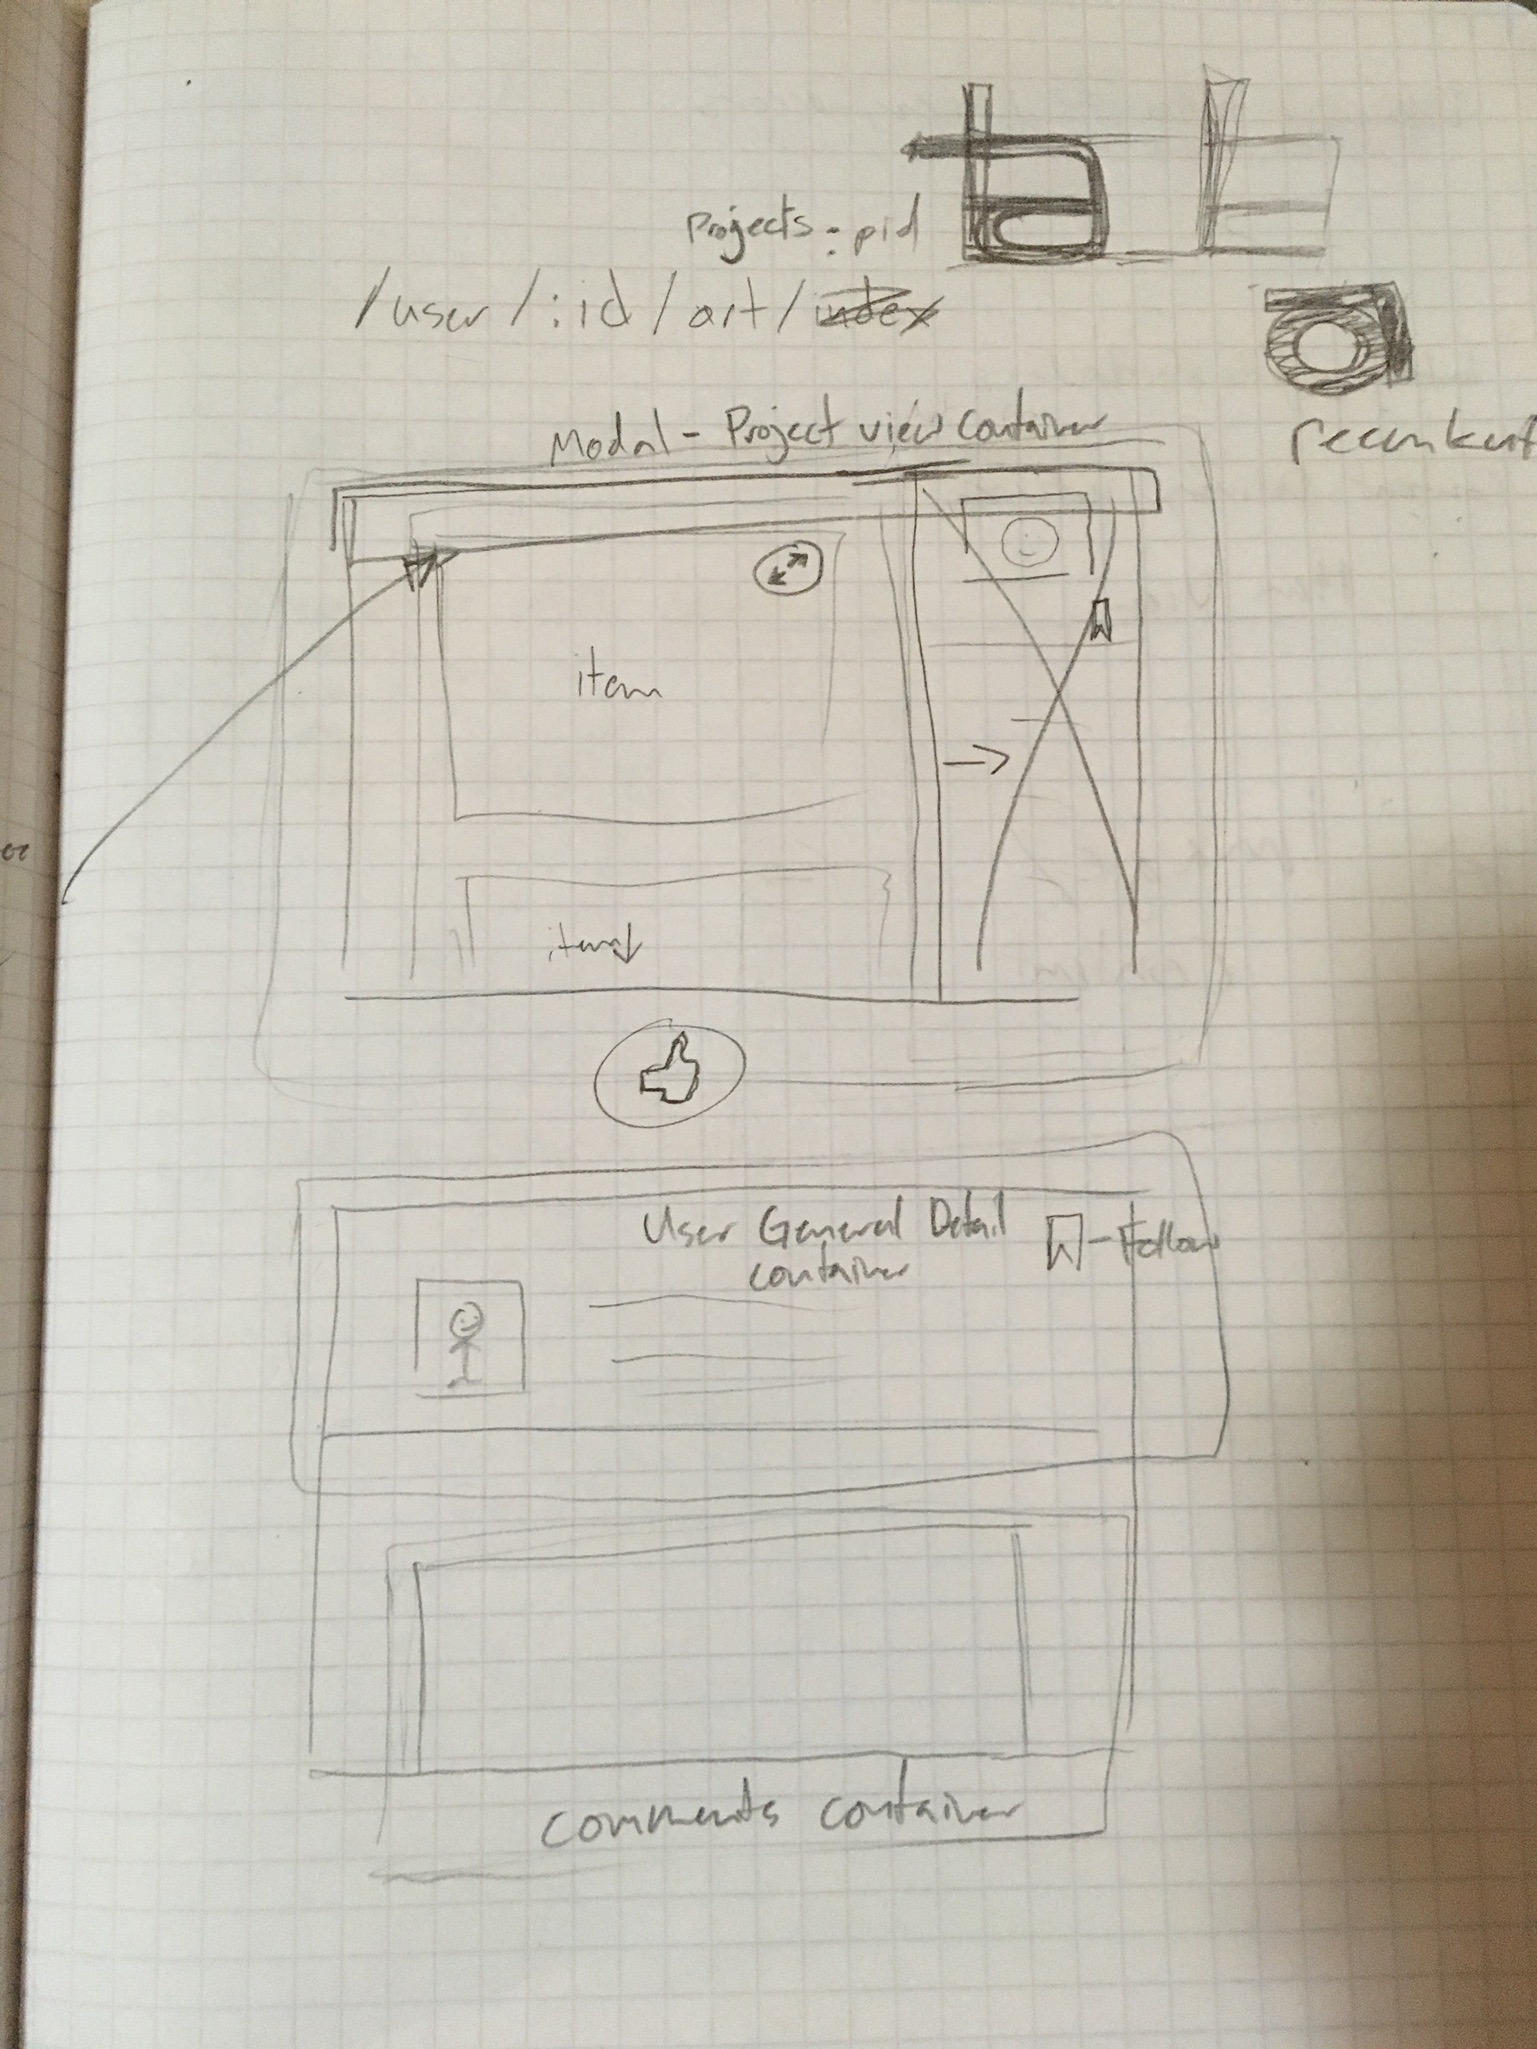 Projects : pid
/user/:id/art/index
Modal - Project view container
item
item
User General Detail
container
- Follow
comments container